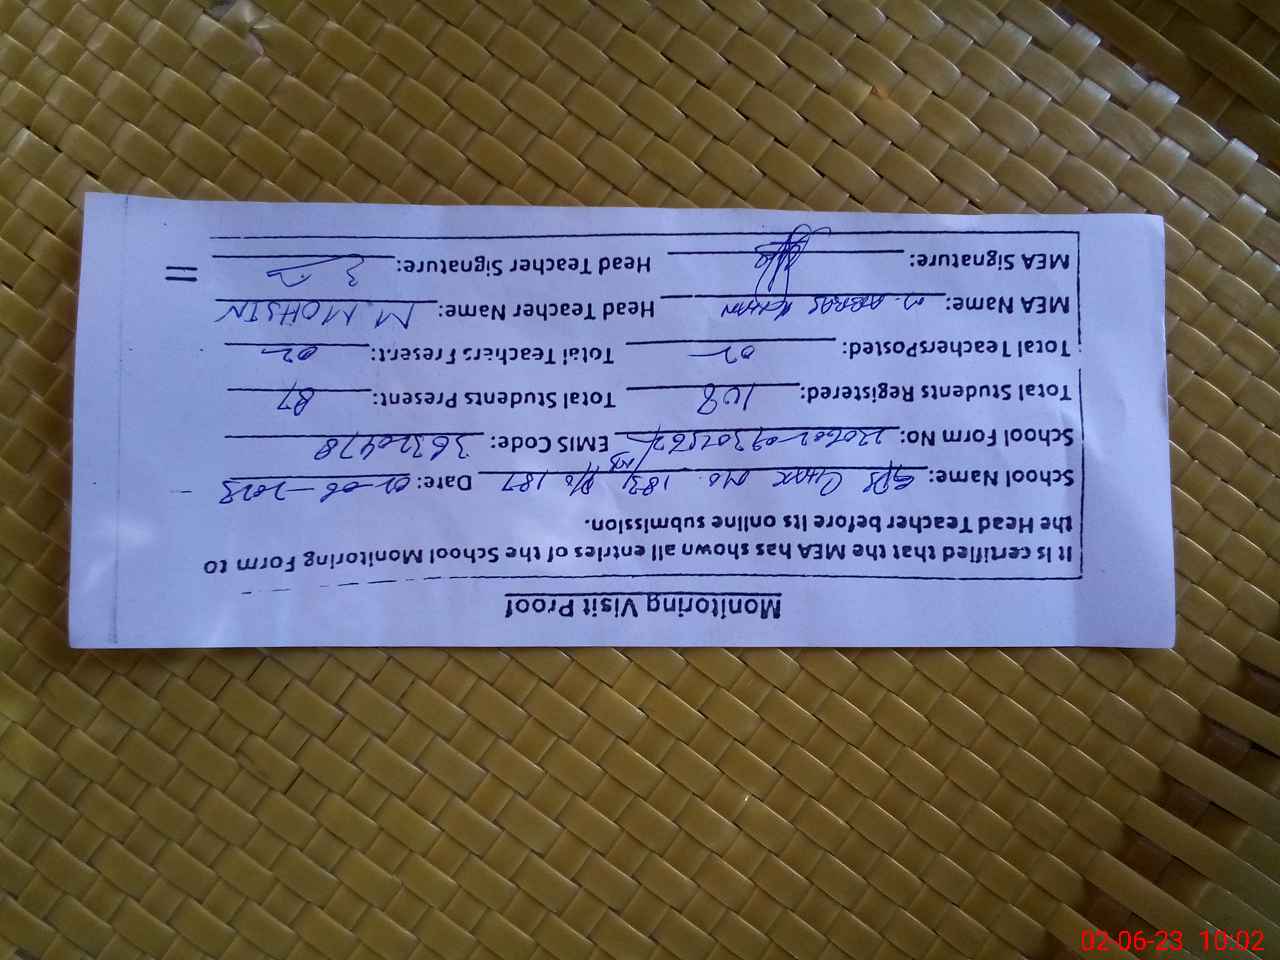 Monitoring Visit Proof
It is certified that the MEA has shown all entries of the School Monitoring Form to
the Head Teacher before its online submission.
School Name: GPS Chak No. 183/ 187 Date: 02-06-2023
School Form No: EMIS Code: 36320478
Total Students Registered: 108 Total Students Present: 87
Total TeachersPosted: 02 Total Teachers Present: 02
MEA Name: M. ABBAS KHAN Head Teacher Name: M. MOHSIN
MEA Signature: Head Teacher Signature:
02-06-23 10:02